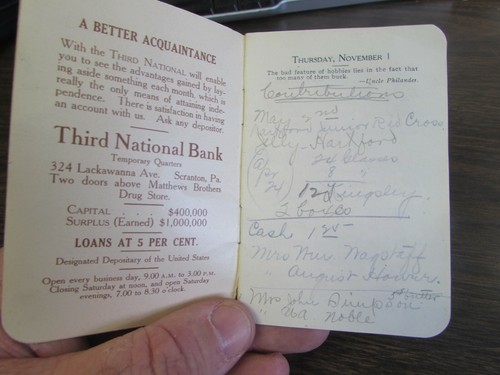 A BETTER ACQUAINTANCE
With the THIRD NATIONAL will enable
you to see the advantages gained by lay-
ing aside something each month, which is
really the only means of attaining inde-
pendence. There is satisfaction in having
an account with us. Ask any depositor.
Third National Bank
Temporary Quarters
324 Lackawanna Ave. Scranton, Pa.
Two doors above Matthews Brothers
Drug Store.
CAPITAL . . . $400,000
SURPLUS (Earned) $1,000,000
LOANS AT 5 PER CENT.
Designated Depositary of the United States
Open every business day, 9.00 A.M. to 3.00 P.M.
Closing Saturday at noon, and open Saturday
evenings, 7.00 to 8.30 o'clock.
THURSDAY, NOVEMBER 1
The bad feature of hobbies lies in the fact that
too many of them buck. —Uncle Philander.
Contributions
May 2nd
Hartford Junior Red Cross
Jelly Hartford
24 Glasses
8 "
12 Kingsley
2 boxes
Cash 1
Mrs Wm Wagstaff
" August Hower
Mrs John Simpson
" Noble